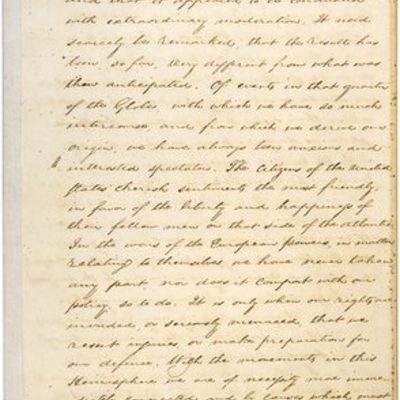 and that it appeared to be conducted
with extraordinary moderation. It need
scarcely be remarked, that the result has
been, so far, very different from what was
then anticipated. Of events in that quarter
of the Globe, with which we have so much
intercourse, and from which we derive our
origin, we have always been anxious and
interested spectators. The Citizens of the United
States cherish sentiments the most friendly,
in favor of the liberty and happiness of
their fellow men on that side of the Atlantic.
In the wars of the European powers, in matters
relating to themselves, we have never taken
any part, nor does it comport with our
policy, so to do. It is only when our rights are
invaded, or seriously menaced, that we
resent injuries, or make preparation for
our defense. With the movements in this
Hemisphere we are of necessity more immed-
iately connected, and by causes which must